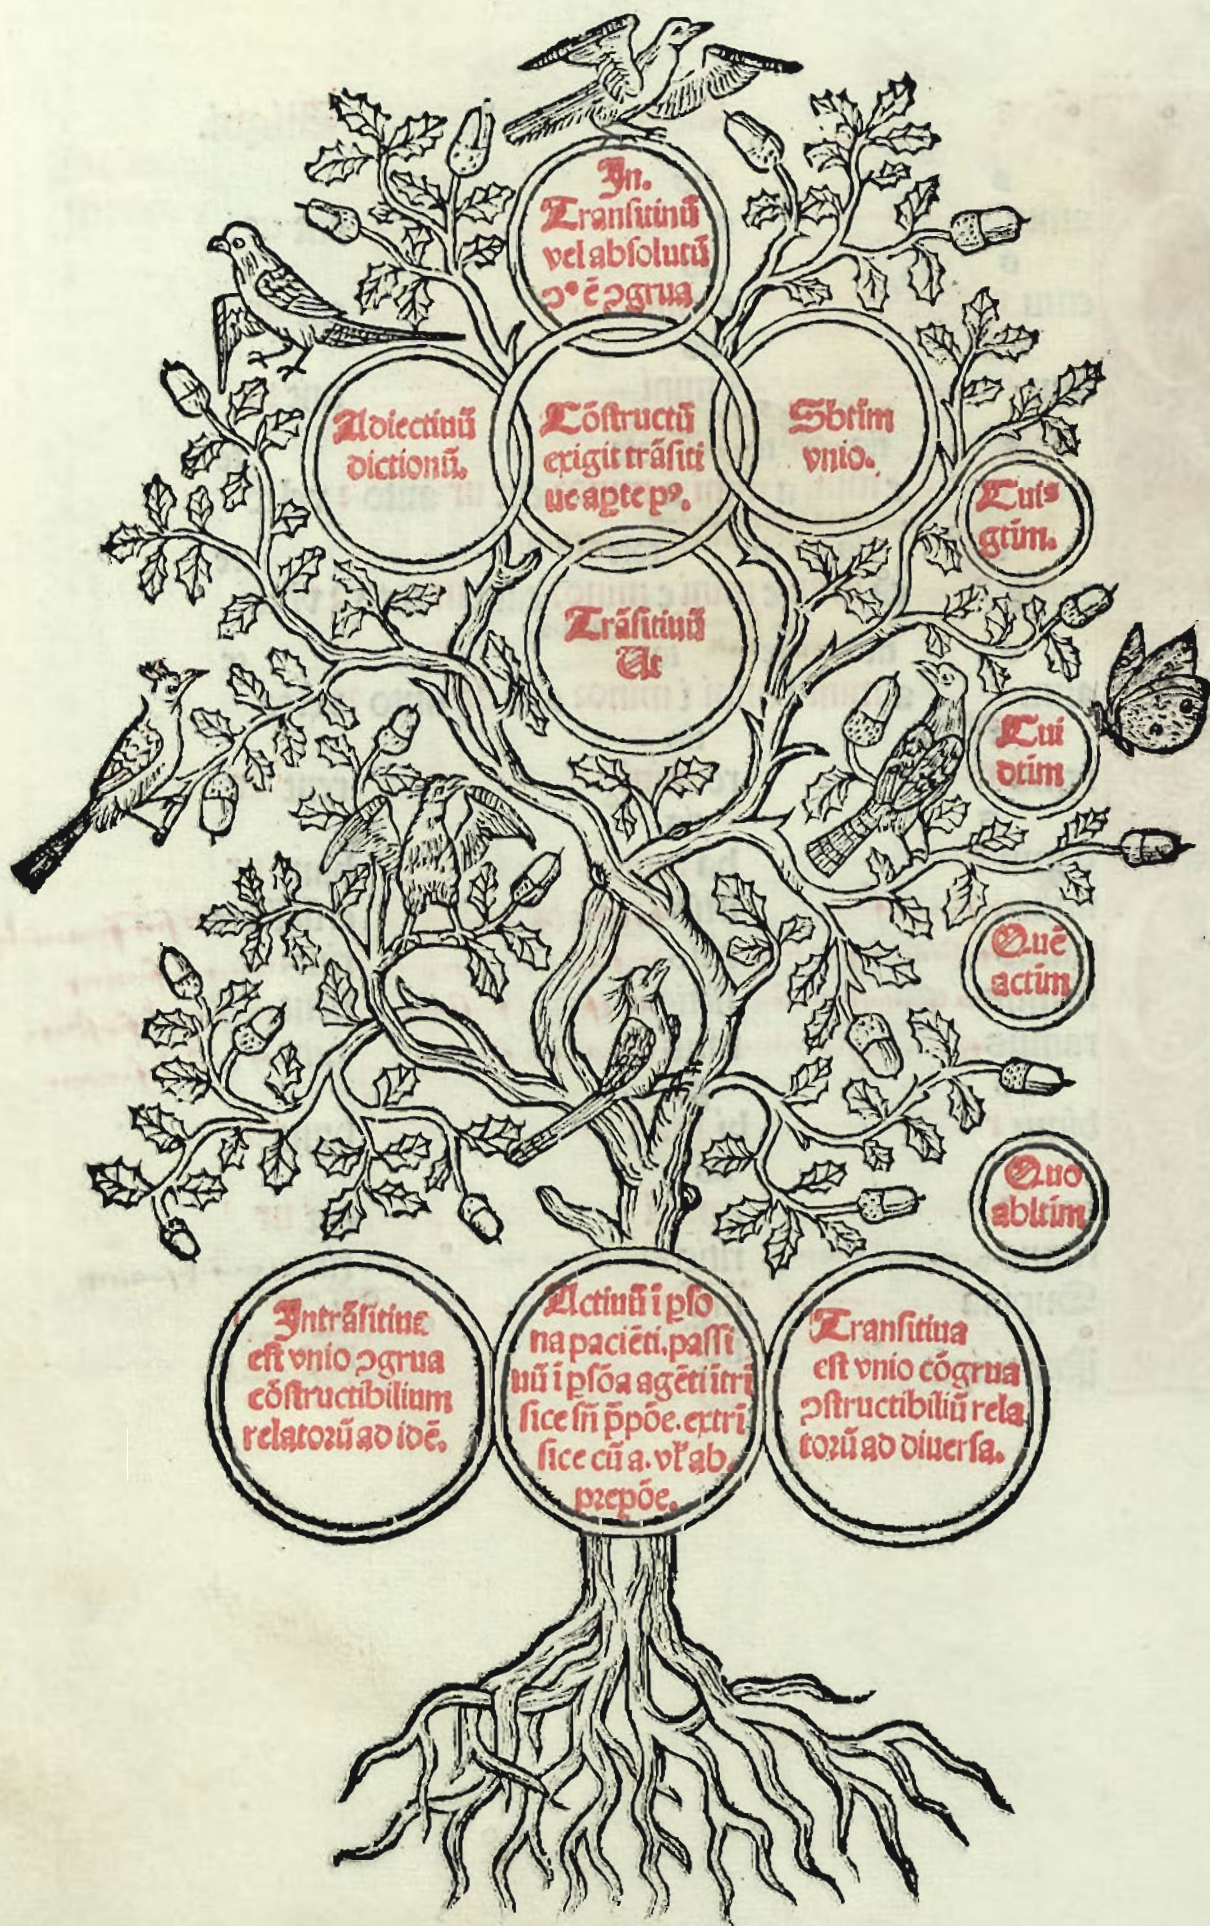 In.
Transitiuū
vel absolutū
ɔ° ē ɔgrua
Adiectiuū
dictionū.
Cōstructū
exigit trāsiti
ue aꝑte pꝰ.
Sb̄tīm
vnio.
Cuiꝰ
gtīm.
Trāsitiuū
Ut
Cui
dtīm
Quē
actīm
Quo
abltīm
Intrāsitiue
est vnio ɔgrua
cōstructibilium
relatorū ad idē.
Actiuū ī ꝑso
na paciēti. passi
uū ī ꝑsōa agēti ītrī
sice sn̄ p̄pōe. extrī
sice cū a. vl̓ ab.
prepōe.
Transitiua
est vnio cōgrua
ɔstructibiliū rela
torū ad diuersa.